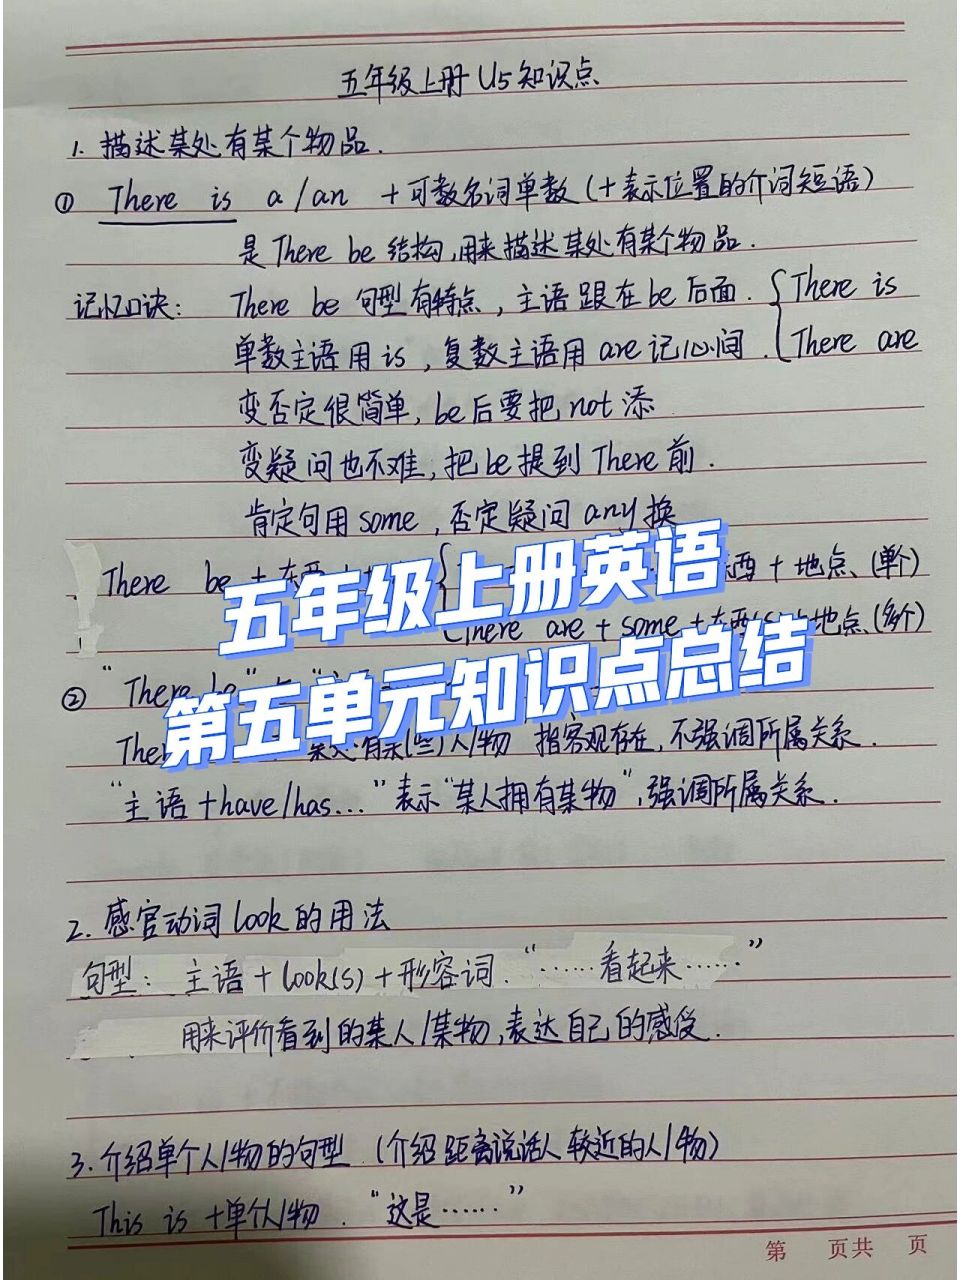 五年级上册 U5 知识点
1. 描述某处有某个物品.
① There is a/an +可数名词单数(+表示位置的介词短语)
是There be 结构,用来描述某处有某个物品.
记忆口诀: There be 句型有特点,主语跟在be后面. { There is
单数主语用is,复数主语用are记心间. There are
变否定很简单,be后要把not添
变疑问也不难,把be提到There前.
肯定句用some,否定疑问any换
There be + 东西 西+地点、(单个)
There are + some +东西 地点、(多个)
五年级上册英语
第五单元知识点总结
② "There be"
Ther 某处有某(些)人/物 指客观存在,不强调所属关系.
"主语+have/has..."表示"某人拥有某物",强调所属关系.
2. 感官动词look的用法
句型: 主语+look(s)+形容词. "……看起来……"
用来评价看到的某人/某物,表达自己的感受.
3. 介绍单个人/物的句型 (介绍距离说话人较近的人/物)
This is +单个人/物. "这是……"
第 页共 页